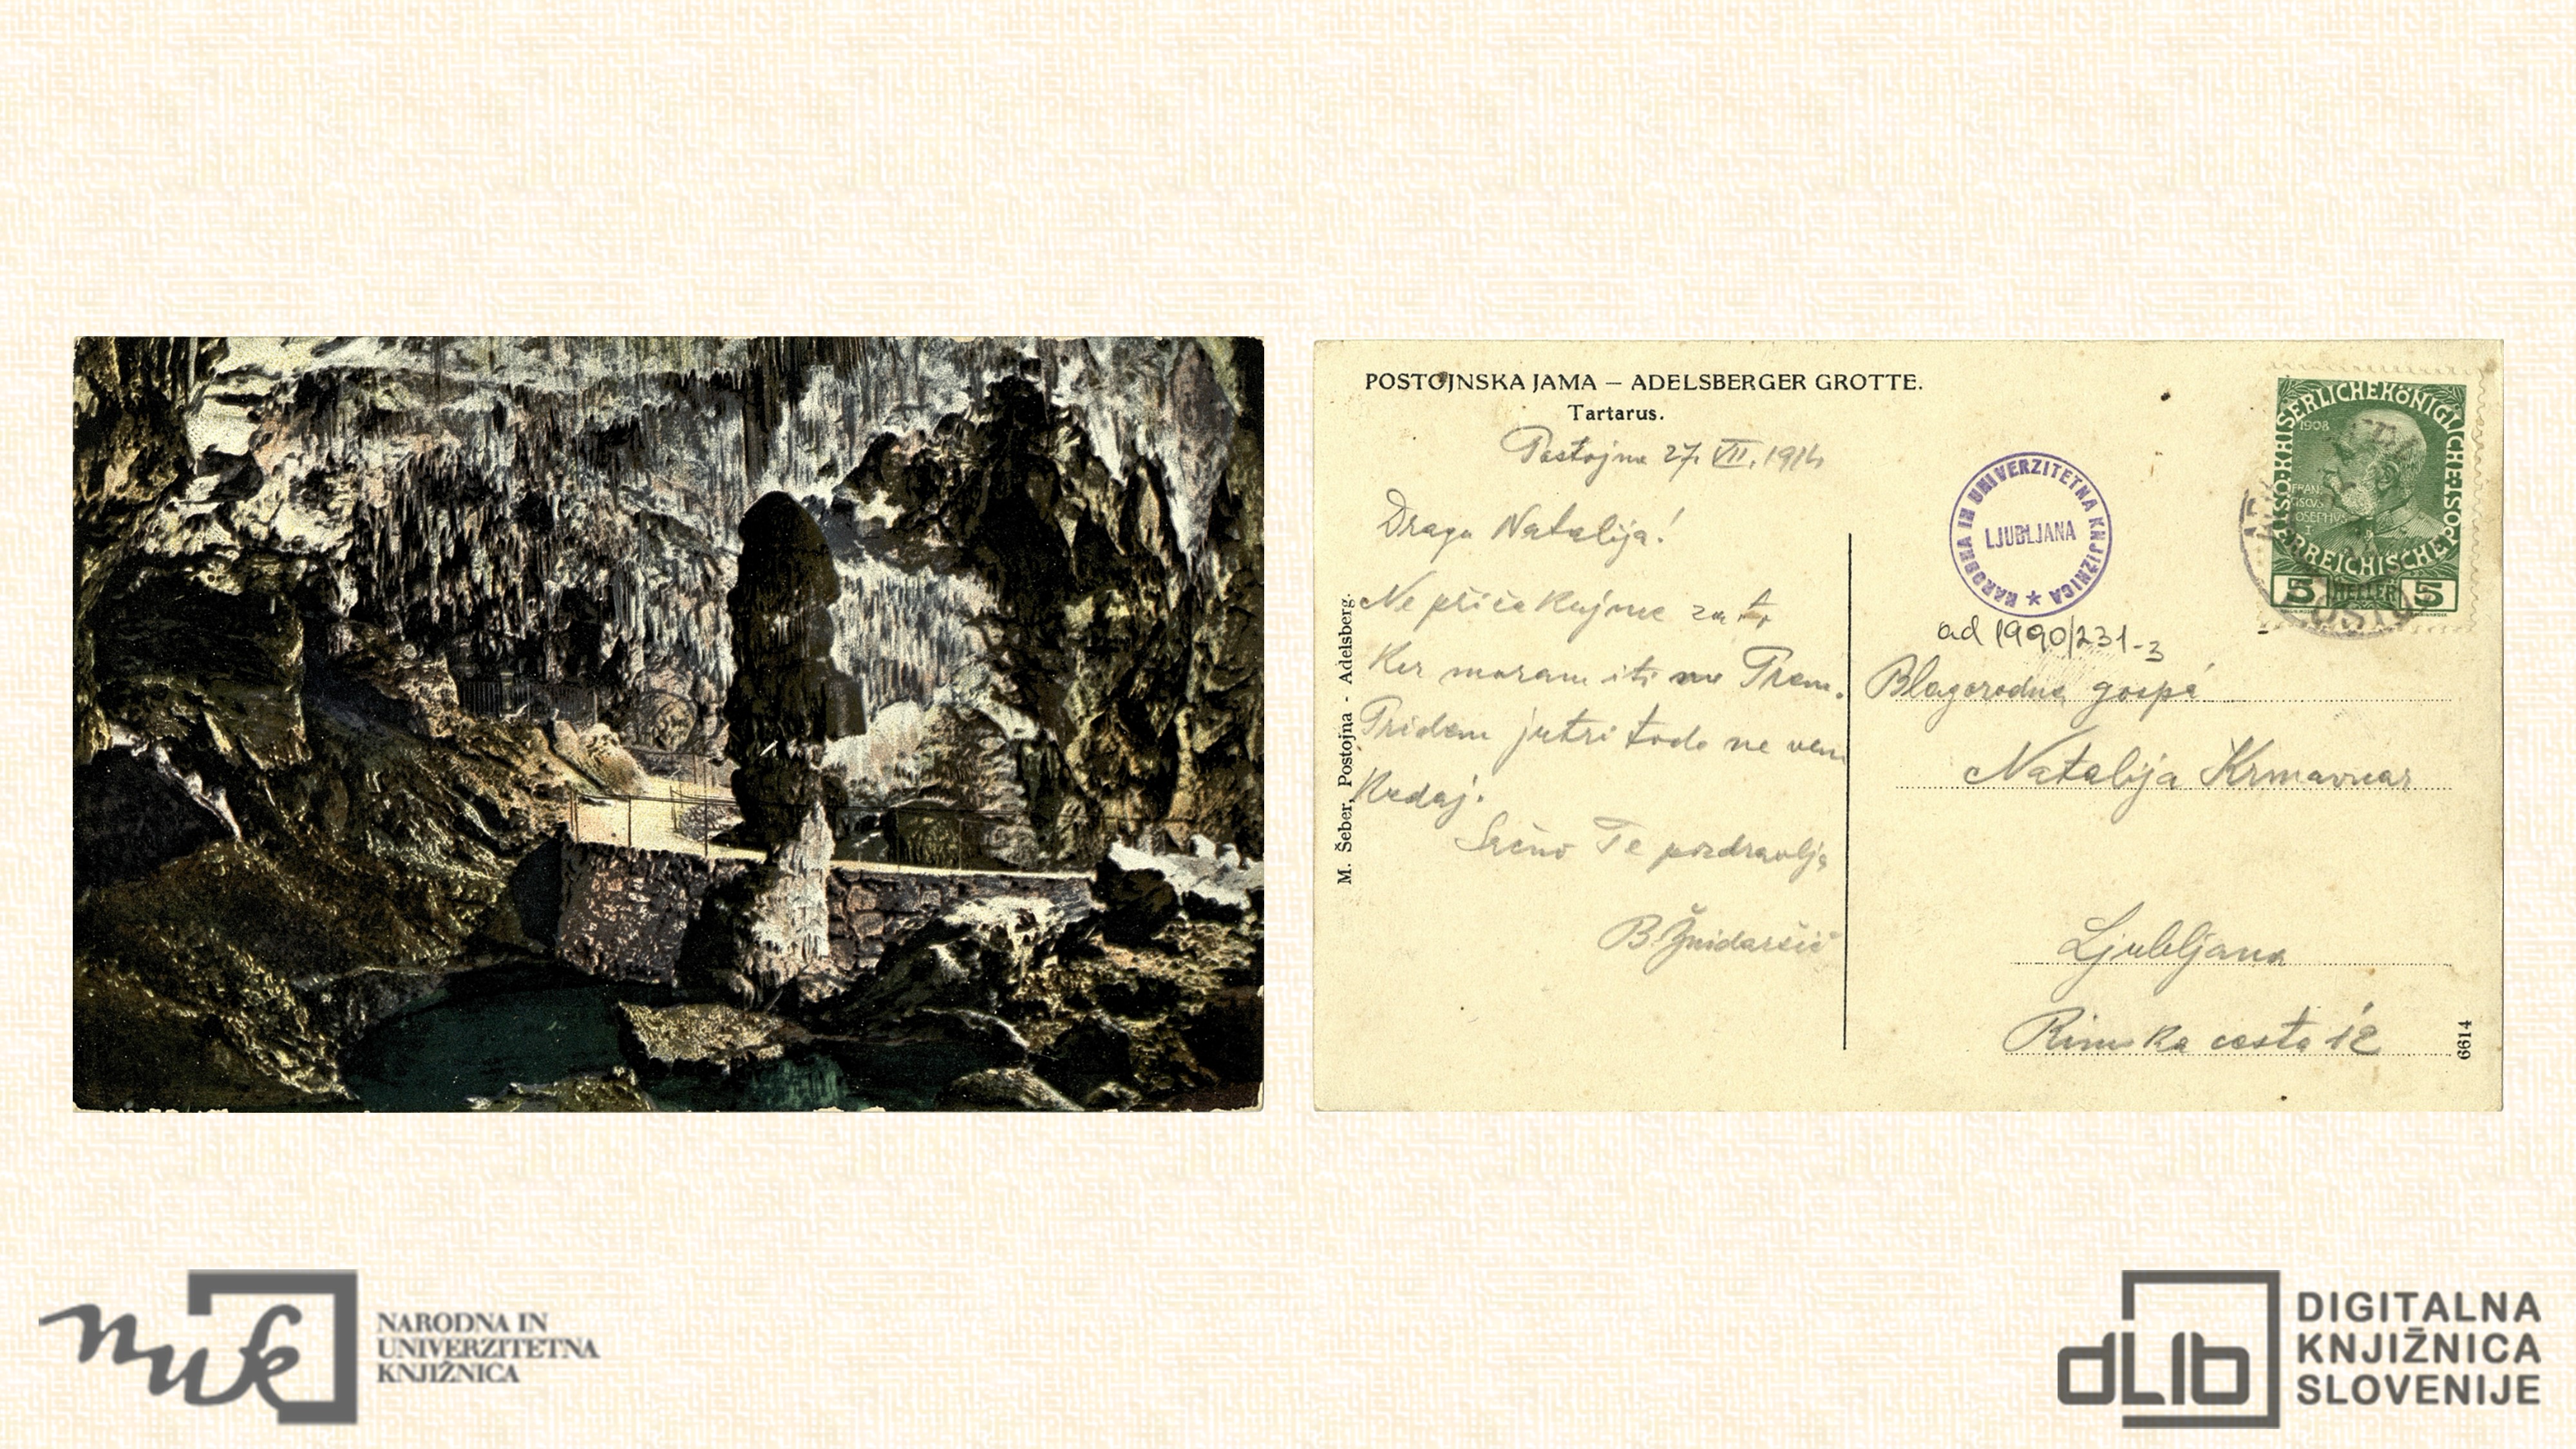 POSTOJNSKA JAMA — ADELSBERGER GROTTE.
Tartarus.
Postojna 27. VII. 1914
Draga Natalija!
Ne pričakujme
Ker moram iti na Prem.
Pridem jutri toda ne vem
Kedaj.
Srčno Te pozdravlja
B. Žnidaršič
M. Šeber, Postojna - Adelsberg.
KAISERLICHEKÖNIGLICHE
ÖSTERREICHISCHE POST
1908
5 HELLER 5
NARODNA IN UNIVERZITETNA KNJIŽNICA ★
LJUBLJANA
ad 1990/231-3
Blagorodna gospá
Natalija Krmavnar
Ljubljana
Rimska cesta 12
6614
nuk
NARODNA IN
UNIVERZITETNA
KNJIŽNICA
dLib
DIGITALNA
KNJIŽNICA
SLOVENIJE